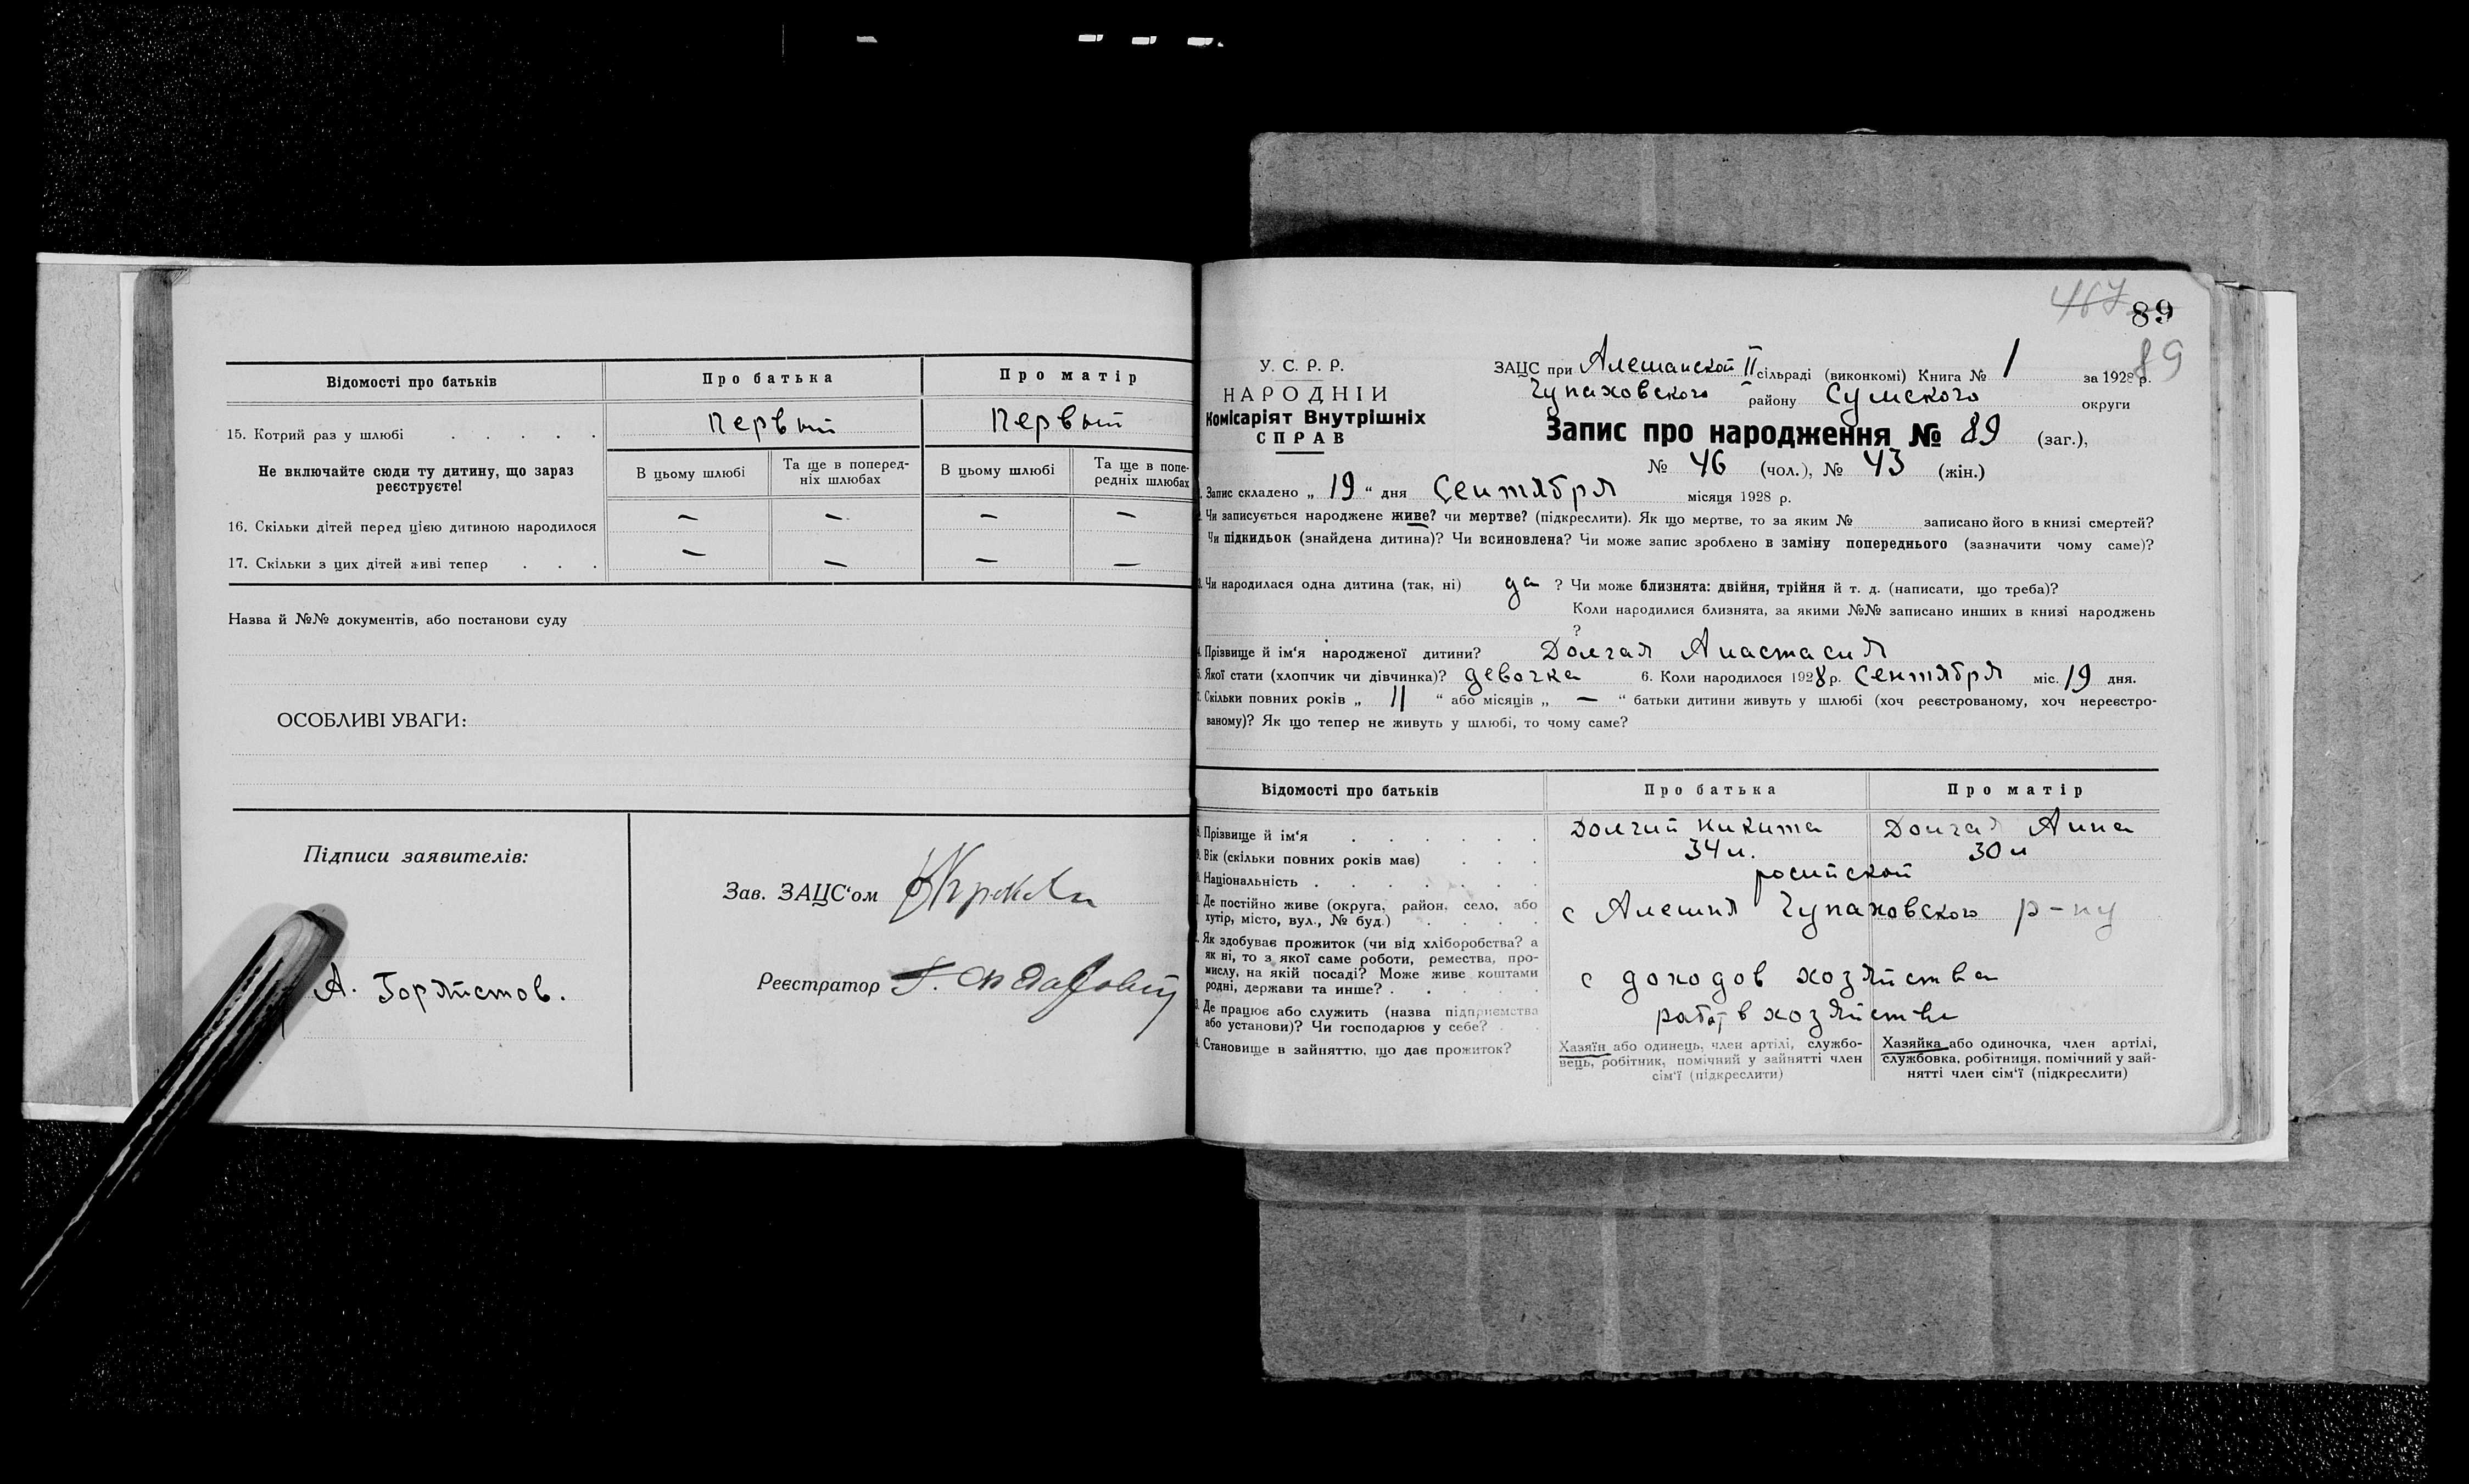 Відомості про батьків
Про батька
Про матір
15. Котрий раз у шлюбі . . . . .
Первый
Первый
Не включайте сюди ту дитину, що зараз
реєструєте!
В цьому шлюбі
Та ще в поперед-
ніх шлюбах
В цьому шлюбі
Та ще в попе-
редніх шлюбах
16. Скільки дітей перед цією дитиною народилося
— — — —
17. Скільки з цих дітей живі тепер . . .
— — — —
Назва й №№ документів, або постанови суду
ОСОБЛИВІ УВАГИ:
Підписи заявителів:
А.
Зав. ЗАЦС'ом
Реєстратор
467 89
89
У. С. Р. Р.
НАРОДНІЙ
Комісаріят Внутрішніх
СПРАВ
ЗАЦС при Алешанской II сільраді (виконкомі) Книга № 1 за 1928 р.
Чупаховского району Сумского округи
Запис про народження № 89 (заг.),
№ 46 (чол.), № 43 (жін.)
. Запис складено „ 19 “ дня Сентября місяця 1928 р.
Чи записується народжене живе? чи мертве? (підкреслити). Як що мертве, то за яким № записано його в книзі смертей?
Чи підкидьок (знайдена дитина)? Чи всиновлена? Чи може запис зроблено в заміну попереднього (зазначити чому саме)?
. Чи народилася одна дитина (так, ні) да ? Чи може близнята: двійня, трійня й т. д. (написати, що треба)?
Коли народилися близнята, за якими №№ записано инших в книзі народжень
?
. Прізвище й ім'я народженої дитини? Долгая Анастасия
. Якої стати (хлопчик чи дівчинка)? девочка 6. Коли народилося 1928 р. Сентября міс. 19 дня.
. Скільки повних років „ 11 “ або місяців „ — “ батьки дитини живуть у шлюбі (хоч реєстрованому, хоч нереєстро-
ваному)? Як що тепер не живуть у шлюбі, то чому саме?
Відомості про батьків
Про батька
Про матір
. Прізвище й ім'я . . . . . .
Долгий Никита
Долгая Анна
. Вік (скільки повних років має) . . .
34 л.
30 л
. Національність . . . . . . .
росийской
. Де постійно живе (округа, район, село, або
хутір, місто, вул., № буд.) . . . .
с Алешня Чупаховского р-ну
. Як здобуває прожиток (чи від хліборобства? а
як ні, то з якої саме роботи, ремества, про-
мислу, на якій посаді? Може живе коштами
родні, держави та инше? . . . . .
с доходов хозяйства
. Де працює або служить (назва підприємства
або установи)? Чи господарює у себе? .
рабо, в хозяйстве
. Становище в зайняттю, що дає прожиток?
Хазяїн або одинець, член артілі, службо-
вець, робітник, помічний у зайнятті член
сім'ї (підкреслити)
Хазяйка або одиночка, член артілі,
службовка, робітниця, помічний у зай-
нятті член сім'ї (підкреслити)